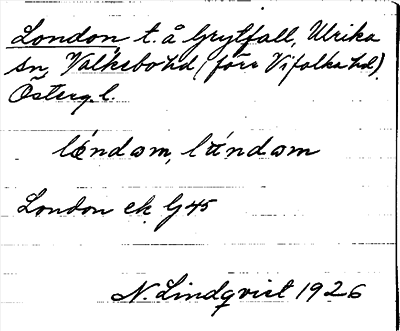 London t. å Grytfall, Ulrika
sn, Valkebo hd (förr Vifolka hd)
Österg. l.
lóndom, lúndom
London ek G45
N. Lindqvist 1926